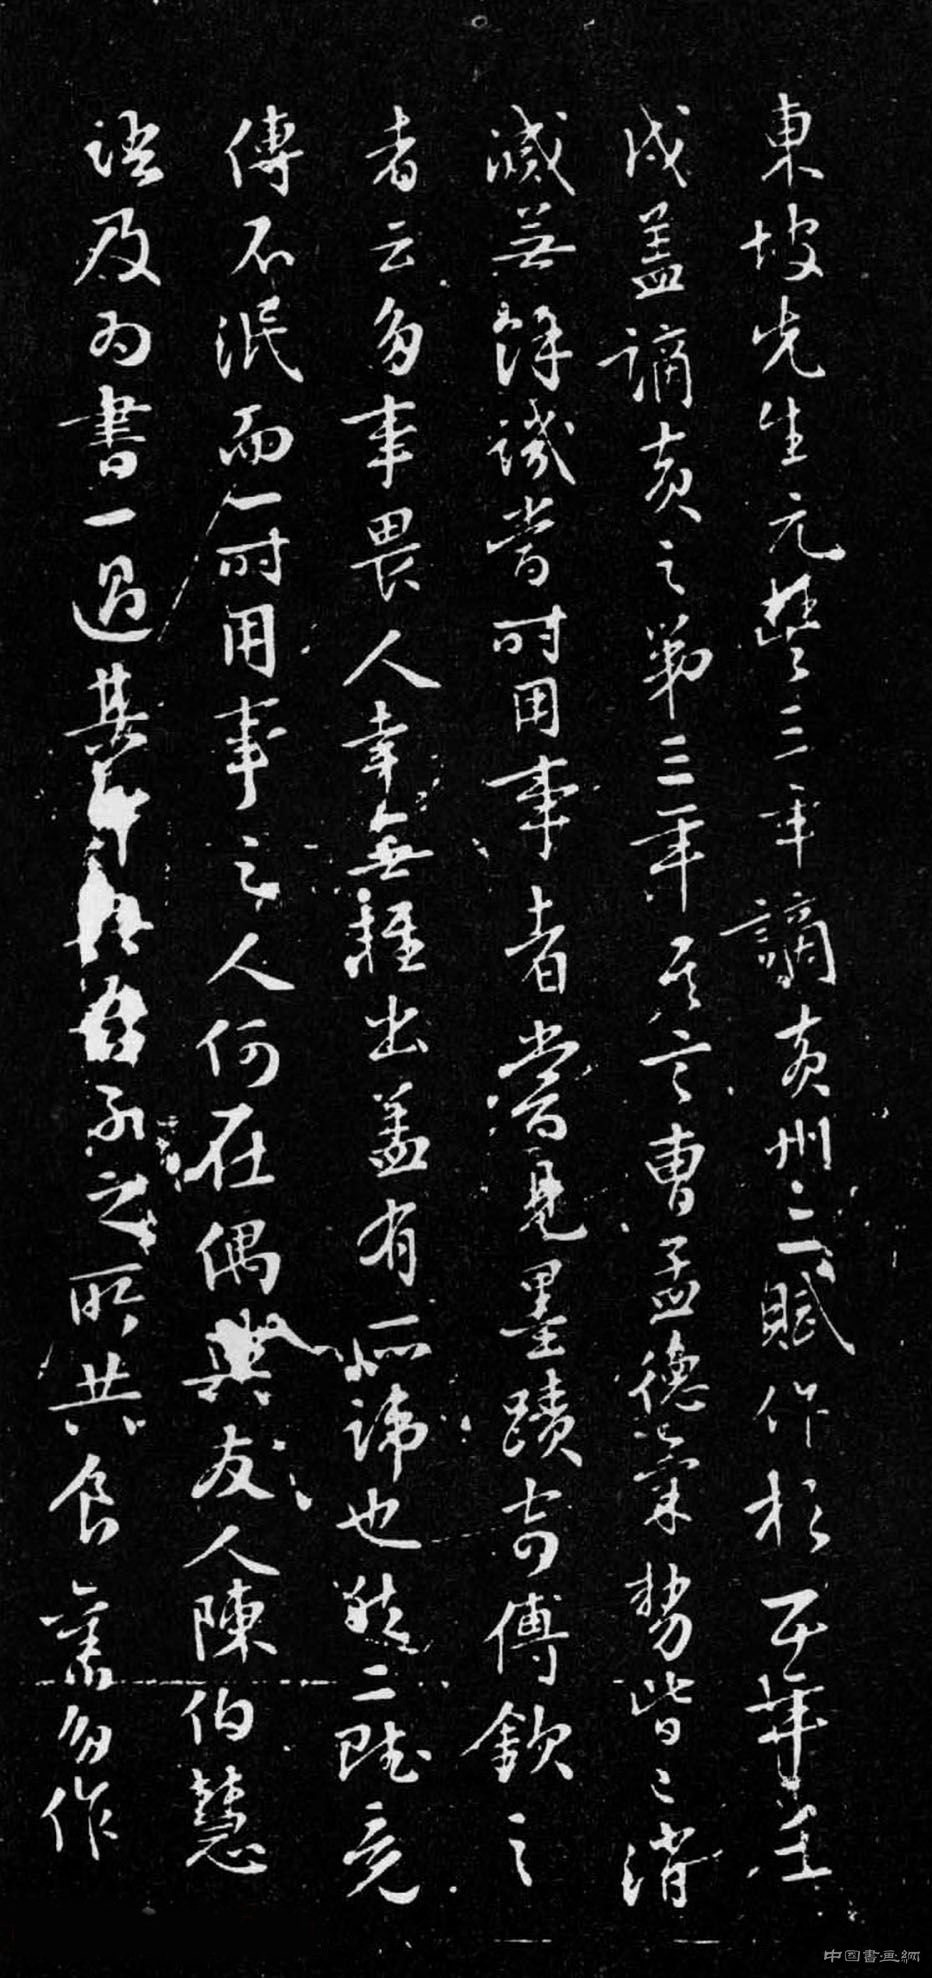 東坡先生元豐三年謫黄州二賦作於五年壬
戌蓋謫黄之第三年其言曹孟德氣勢皆已消
滅無餘譏當時用事者嘗見墨蹟寄傅欽之
者云多事畏人幸無輕出蓋有所諱也然二賦竟
傳不泯而一時用事之人何在偶與友人陳伯慧
語及為書一過其
子之所共食舊多作
中国書画網